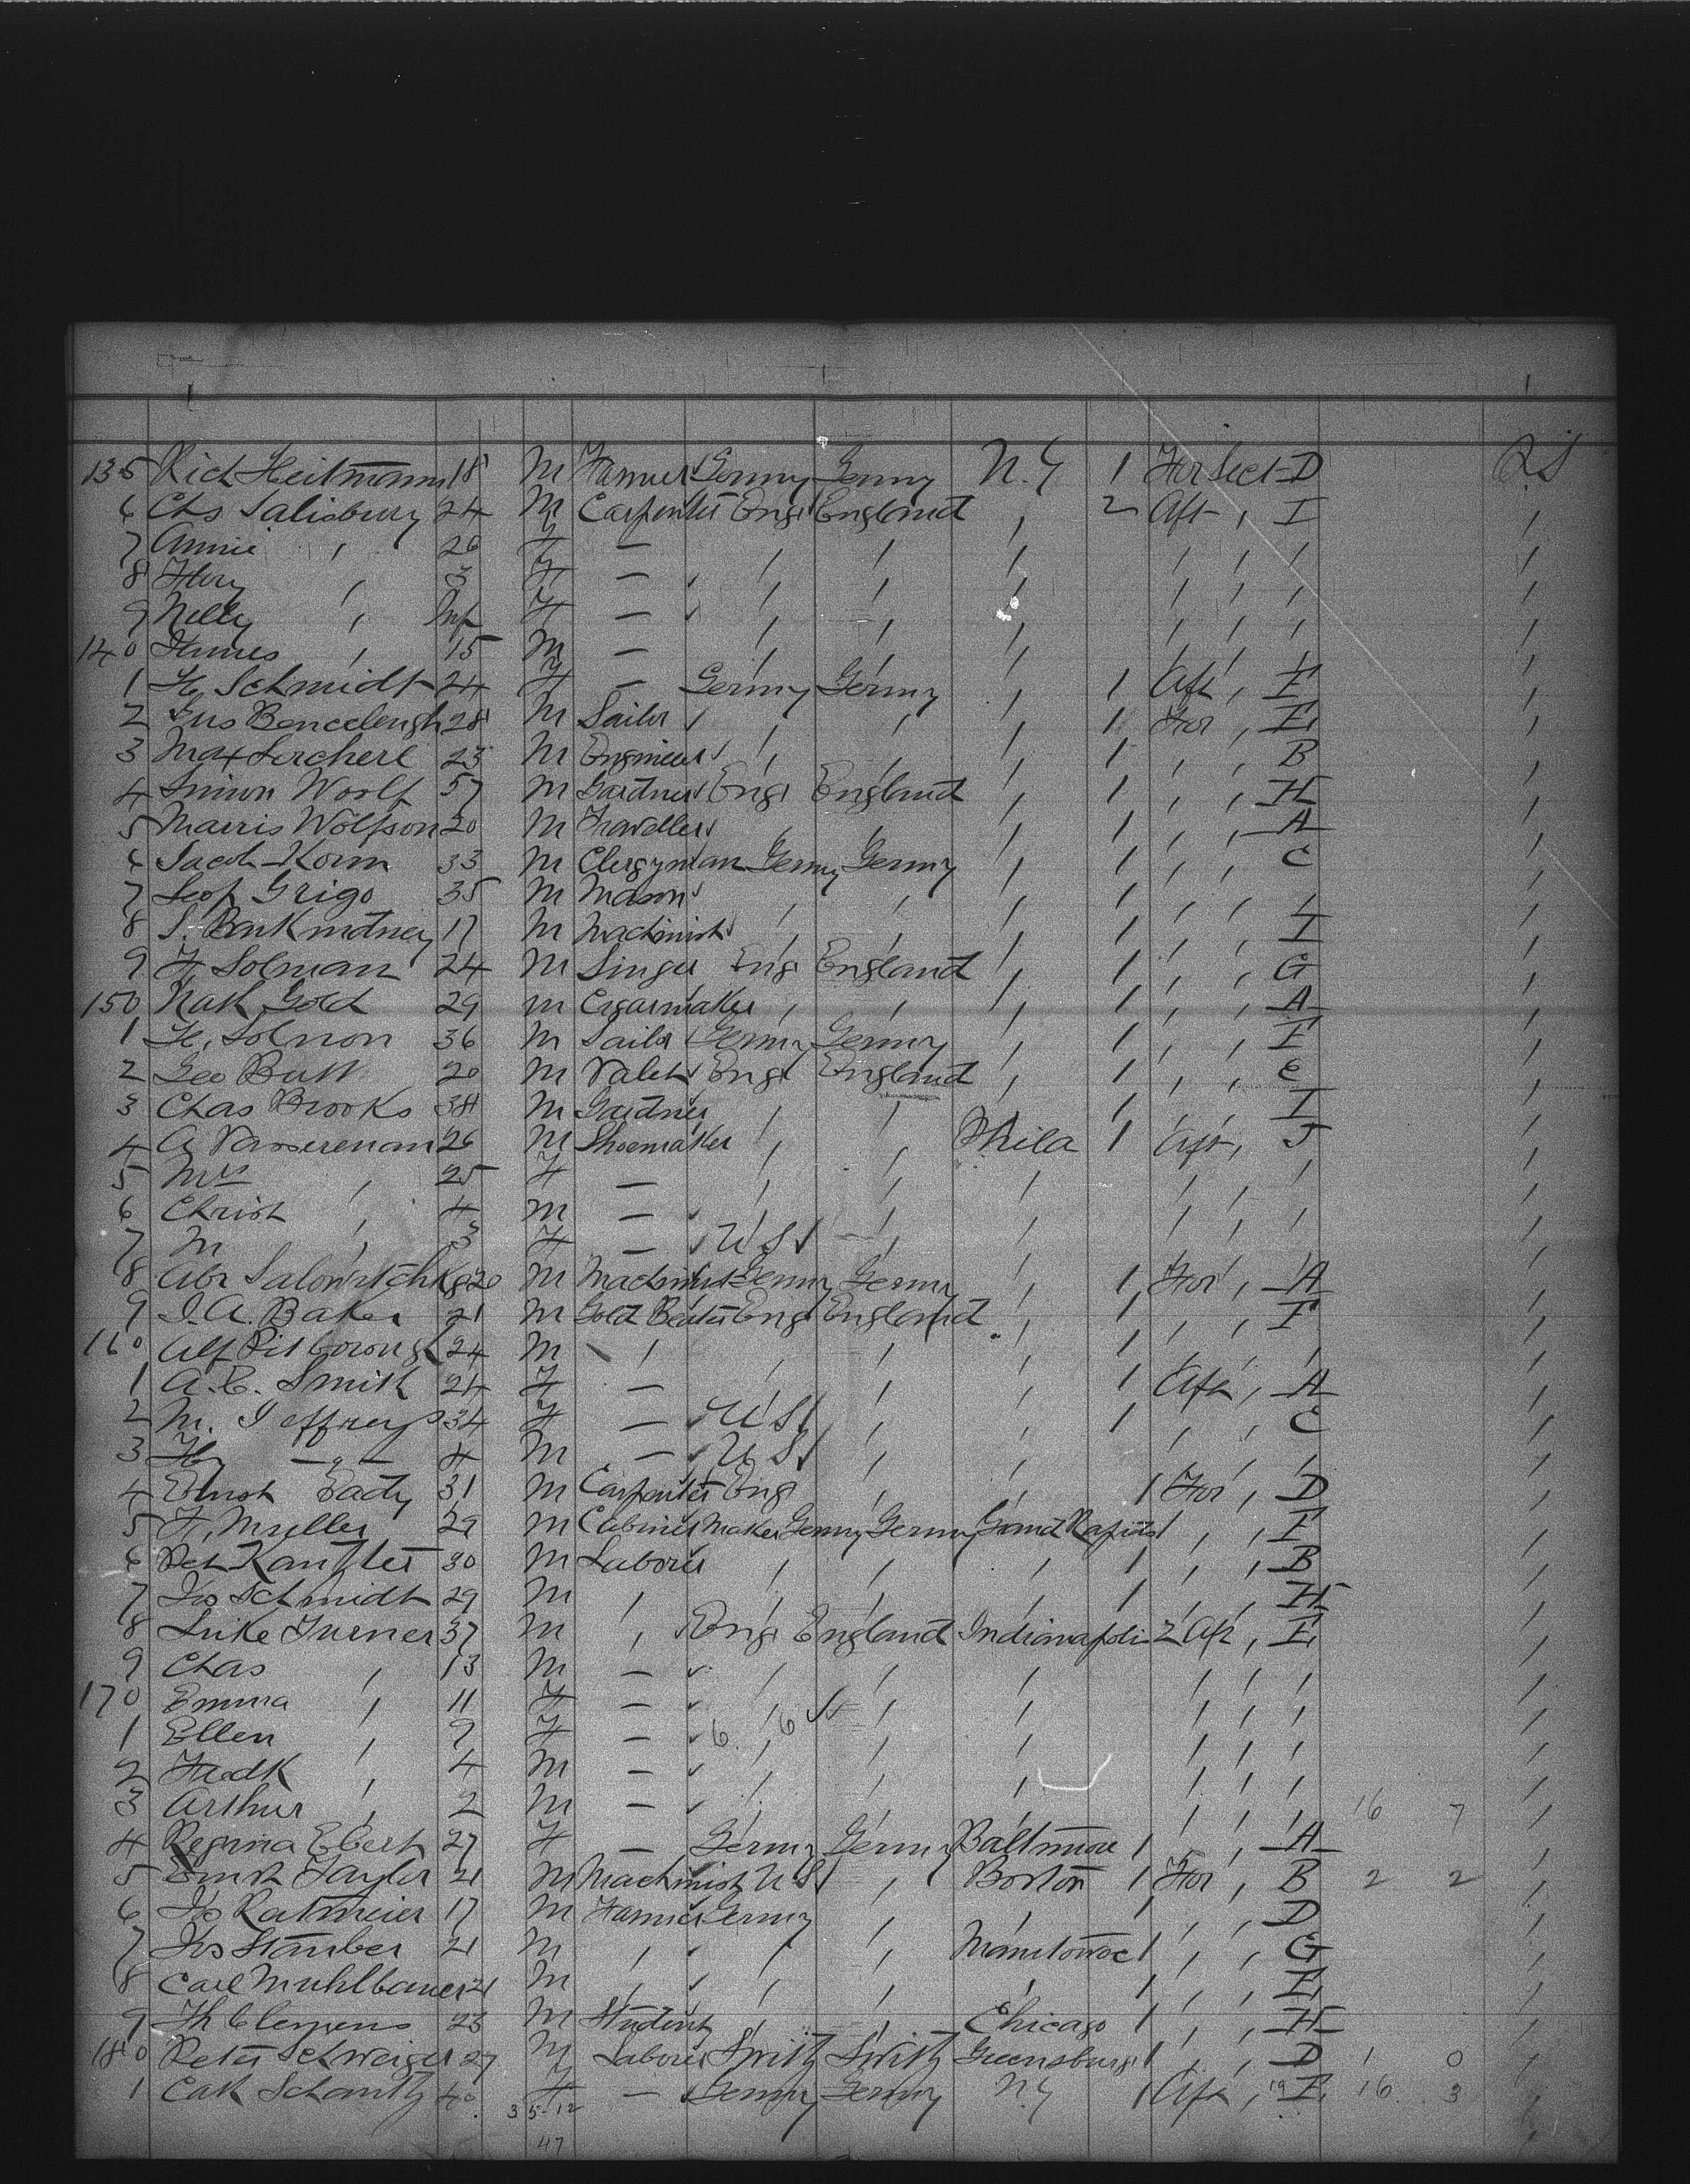 135 Rich Heitmann 18 M Farmer Germy Germy N.Y 1 For Sect D QS
6 Chs Salisbury 24 M Carpenter Engl England , 2 Aft , I ,
7 Annie , 26 F — , , , , , , ,
8 Flory , 3 F — , , , , , , ,
9 Nelly , Inf F — , , , , , , ,
140 James , 15 M — , , , , , , ,
1 H. Schmidt 24 F — Germy Germy , 1 Aft , E ,
2 Gus 28 M Sailor , , , 1 For , E ,
3 Max 23 M Engineer , , , 1 , , B ,
4 Simon Woolf 57 M Gardner Engl England , 1 , , H ,
5 Marris Wolfson 20 M Traveller , , , 1 , , A ,
6 Jacob Korn 33 M Clergyman Germy Germy , 1 , , C ,
7 Leop Grigo 35 M Mason , , , 1 , , , ,
8 S. 17 M Machinist , , , 1 , , I ,
9 F Solman 24 M Singer Engl England , 1 , , G ,
150 Nath Gold 29 M Cigarmaker , , , 1 , , A ,
1 H. Solmon 36 M Sailor Germy Germy , 1 , , E ,
2 Geo Butt 20 M Valet Engl England , 1 , , C ,
3 Chas Brooks 38 M Gardner , , , 1 , , I ,
4 A 26 M Shoemaker , , Phila 1 Aft , J ,
5 Mrs , 25 F — , , , , , , ,
6 Christ , 4 M — , , , , , , ,
7 M , 3 F — U S , , , , , ,
8 Abr 20 M Machinist Germy Germy , 1 For , A ,
9 J. A. Baker 21 M Gold Beater Engl England , 1 , , F ,
160 Alf 24 M , , , , 1 , , , ,
1 A. C. Smith 24 F — , , , 1 Aft , A ,
2 M. Jeffreys 34 F — U S , , 1 , , C ,
3 Hy — " — 4 M — U S , , , , , ,
4 Ernst Eady 31 M Carpenter Engl , , 1 For , D ,
5 F. Muller 29 M Cabinet Maker Germy Germy Grand Rapids 1 , , E ,
6 Pet Kanzler 30 M Laborer , , , 1 , , B ,
7 Jos Schmidt 29 M , , , , 1 , , H ,
8 Luke Turner 37 M , Engl England Indianapolis 2 Aft , E ,
9 Chas , 13 M — , , , , , , ,
170 Emma , 11 F — , , , , , , ,
1 Ellen , 9 F — 6 6 , , , , , , ,
2 Fredk , 4 M — , , , , , , ,
3 Arthur , 2 M — , , , , , , 16 7 ,
4 Regina Ebert 27 F — Germy Germy Baltimore 1 , , A ,
5 Ernst Taylor 21 M Machinist U S , Boston 1 For , B 2 2 ,
6 Jos Ratmeier 17 M Farmer Germy , , 1 , , D ,
7 Jos Stauber 21 M , , , Manitowoc 1 , , G ,
8 Carl Muhlbauer 21 M , , , , 1 , , E ,
9 Th Clemens 23 M Student , , Chicago 1 , , H ,
180 Peter Schweiger 27 M Laborer Switz Switz Greensburg 1 , , D 1 0 ,
1 Cath Schantz 40 F — Germy Germy N.Y 1 Aft , 19 E 16 3 ,
3 5-12
47